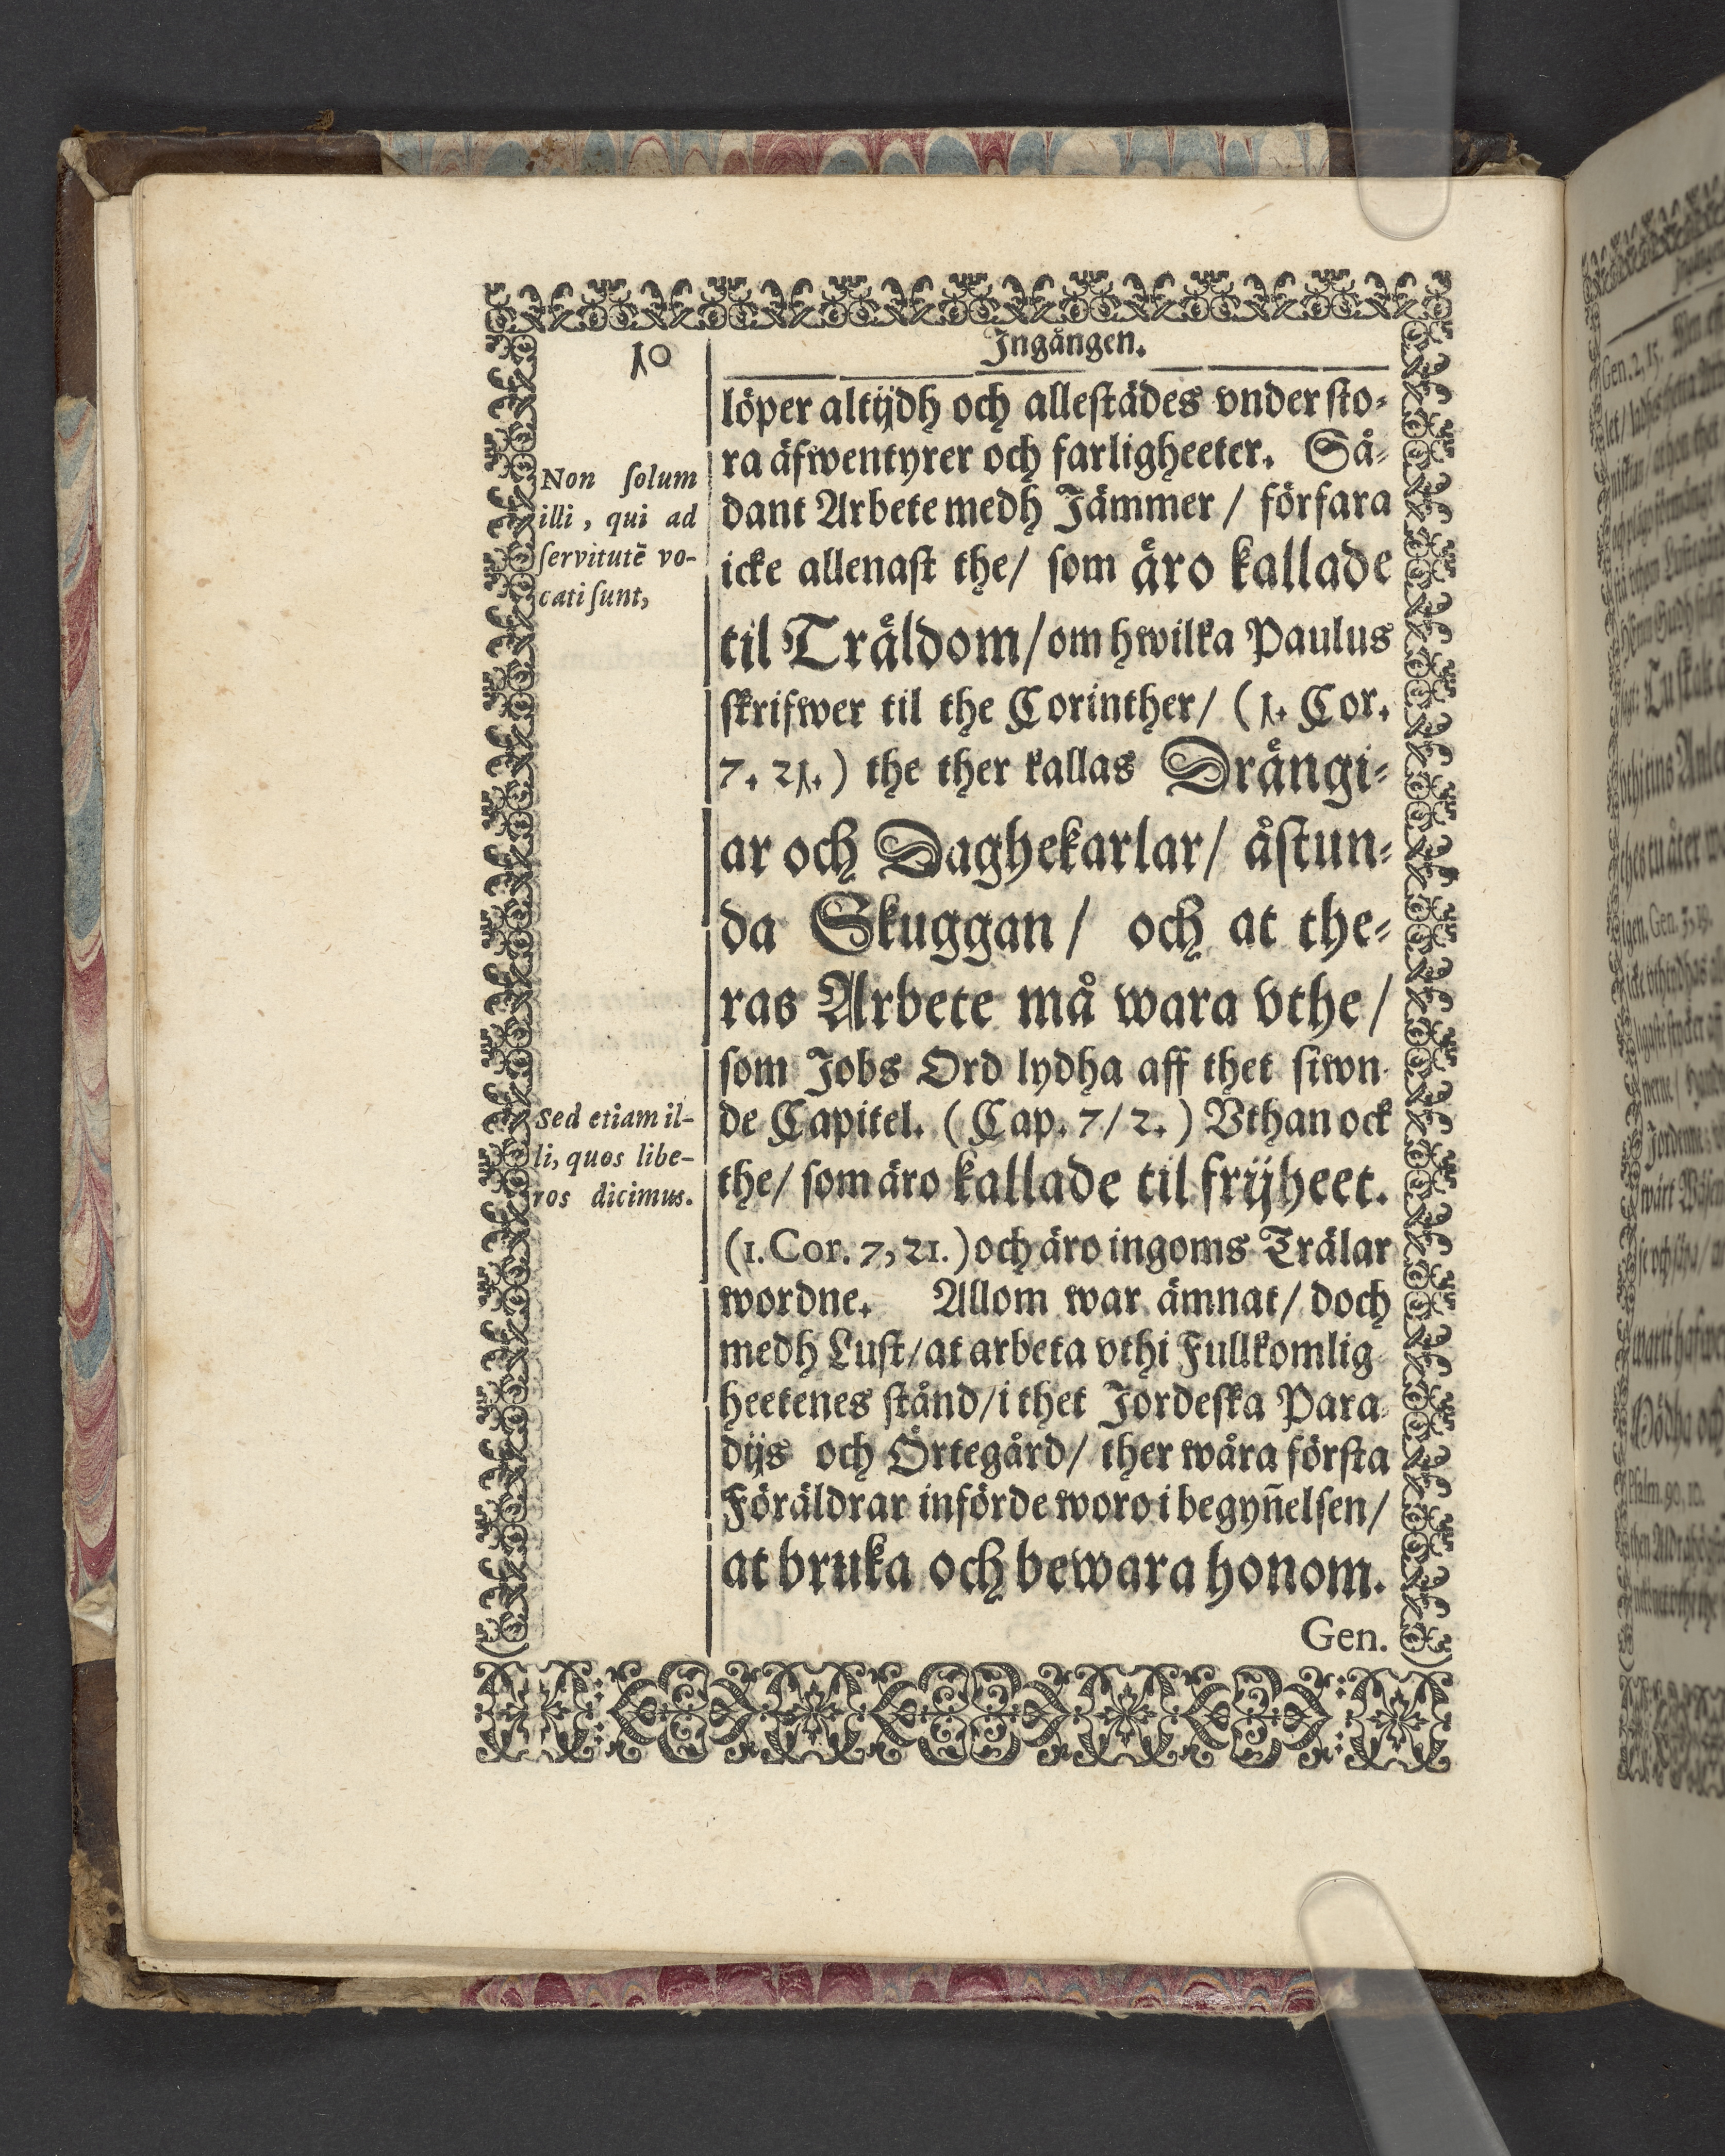 10
Ingången.
Non solum
illi, qui ad
servitutē vo-
cati sunt,
Sed etiam il-
li, quos libe-
ros dicimus.
löper altijdh och allestädes vnder sto-
ra äfwentyrer och farligheeter. Så-
dant Arbete medh Jämmer / förfara
icke allenast the / som äro kallade
til Träldom / om hwilka Paulus
skrifwer til the Corinther / (1. Cor.
7. 21.) the ther kallas Drängi-
ar och Daghekarlar / åstun-
da Skuggan / och at the-
ras Arbete må wara vthe /
som Jobs Ord lydha aff thet siwn-
de Capitel. (Cap. 7/2.) Vthan ock
the / som äro kallade til frijheet.
(1. Cor. 7, 21.) och äro ingoms Trälar
wordne. Allom war ämnat / doch
medh Lust / at arbeta vthi Fullkomlig
heetenes stånd / i thet Jordeska Para-
dijs och Örtegård / ther wåra första
Föräldrar införde woro i begyn̄elsen /
at bruka och bewara honom.
Gen.